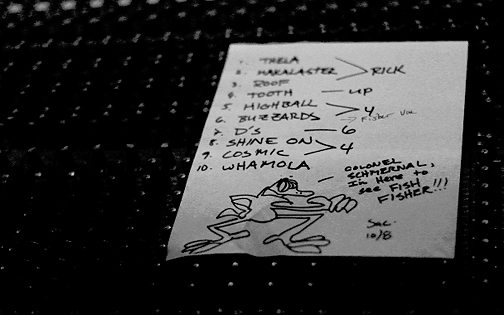 1. THELA
2. MAKALASTER > RICK
3. ROOF
4. TOOTH — UP
5. HIGHBALL > 4
6. BUZZARDS → Fisher Vox
7. D'S — 6
8. SHINE ON > 4
9. COSMIC
10. WHAMOLA
COLONEL
SCHMERNAL,
I'm Here to
see FISH
FISHER!!!
Sac.
10/8